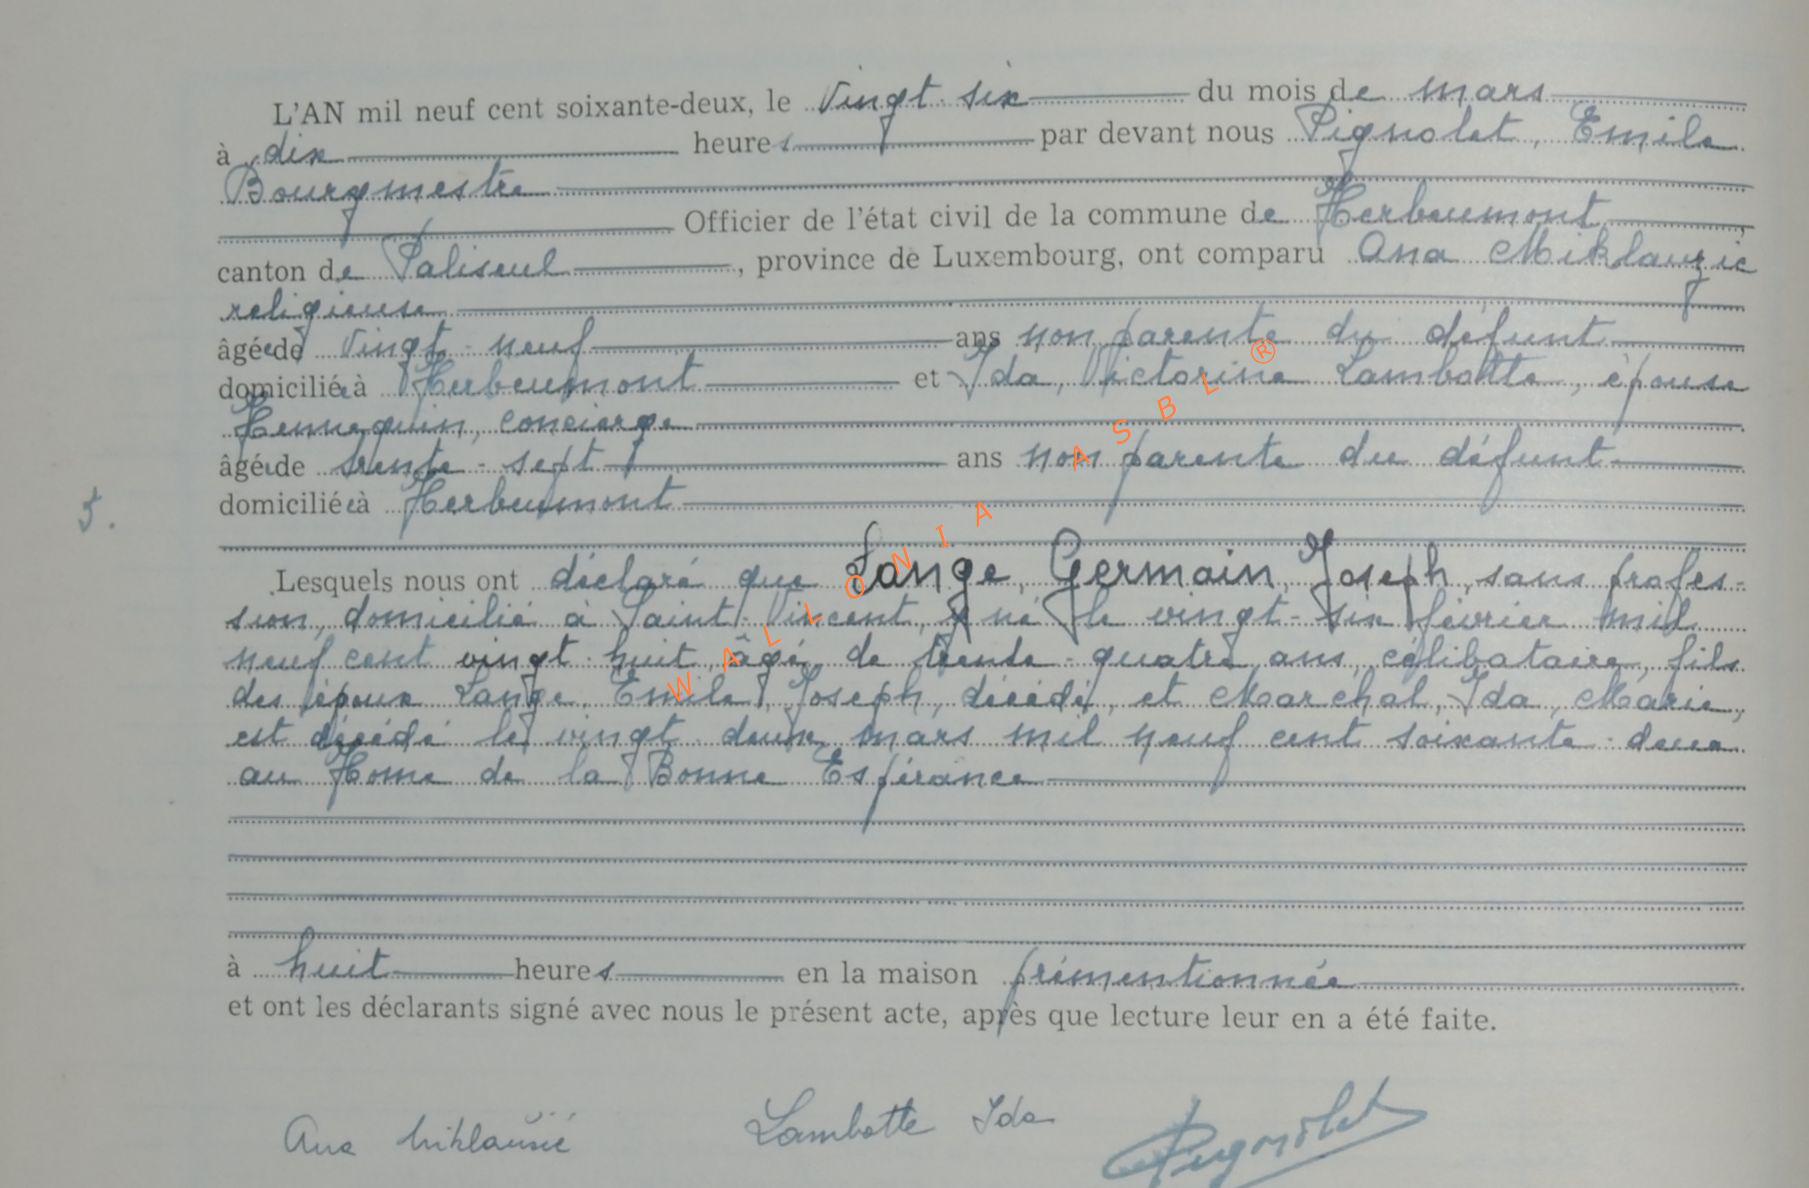 L'AN mil neuf cent soixante-deux, le vingt-six du mois de mars
à dix heures par devant nous Pignolet, Emile
Bourgmestre
Officier de l'état civil de la commune de Herbeumont
canton de Paliseul, province de Luxembourg, ont comparu Ana Miklauzic
religieuse
âgée de vingt-neuf ans non parente du défunt
domiciliée à Herbeumont et Ida, Victorine Lambotte, épouse
Hennequin, concierge
âgée de trente-sept ans non parente du défunt
domiciliée à Herbeumont
5.
Lesquels nous ont déclaré que Lange, Germain, Joseph, sans profes-
sion, domicilié à Saint-Vincent, y né le vingt-six février mil
neuf cent vingt-huit, âgé de trente-quatre ans, célibataire, fils
des époux Lange, Emile, Joseph, décédé, et Maréchal, Ida, Marie,
est décédé le vingt-deux mars mil neuf cent soixante-deux
au Home de la Bonne Espérance
à huit heures en la maison prémentionnée
et ont les déclarants signé avec nous le présent acte, après que lecture leur en a été faite.
Ana Miklaužić Lambotte Ida Pignolet
WALLONIA ASBL ®